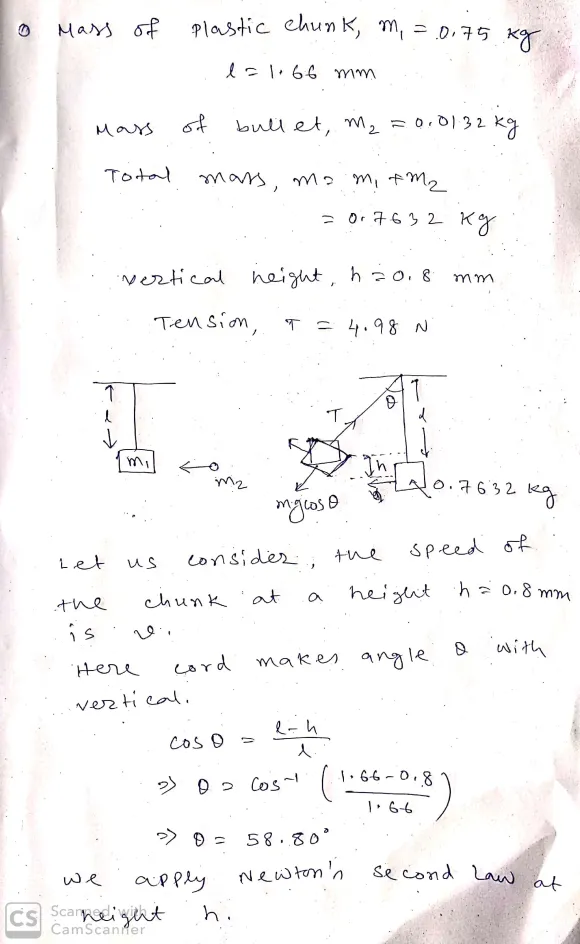 Mass of plastic chunk, m₁ = 0.75 kg
l = 1.66 mm
Mass of bullet, m₂ = 0.0132 kg
Total mass, m = m₁ + m₂
= 0.7632 kg
vertical height, h = 0.8 mm
Tension, T = 4.98 N
l
m₁
m₂
T
θ
h
mg cos θ
0.7632 kg
Let us consider, the speed of
the chunk at a height h = 0.8 mm
is v.
Here cord makes angle θ with
vertical.
cos θ = l-h / l
=> θ = cos⁻¹ (1.66-0.8 / 1.66)
=> θ = 58.80°
we apply Newton's second law at
height h.
CS Scanned with
CamScanner